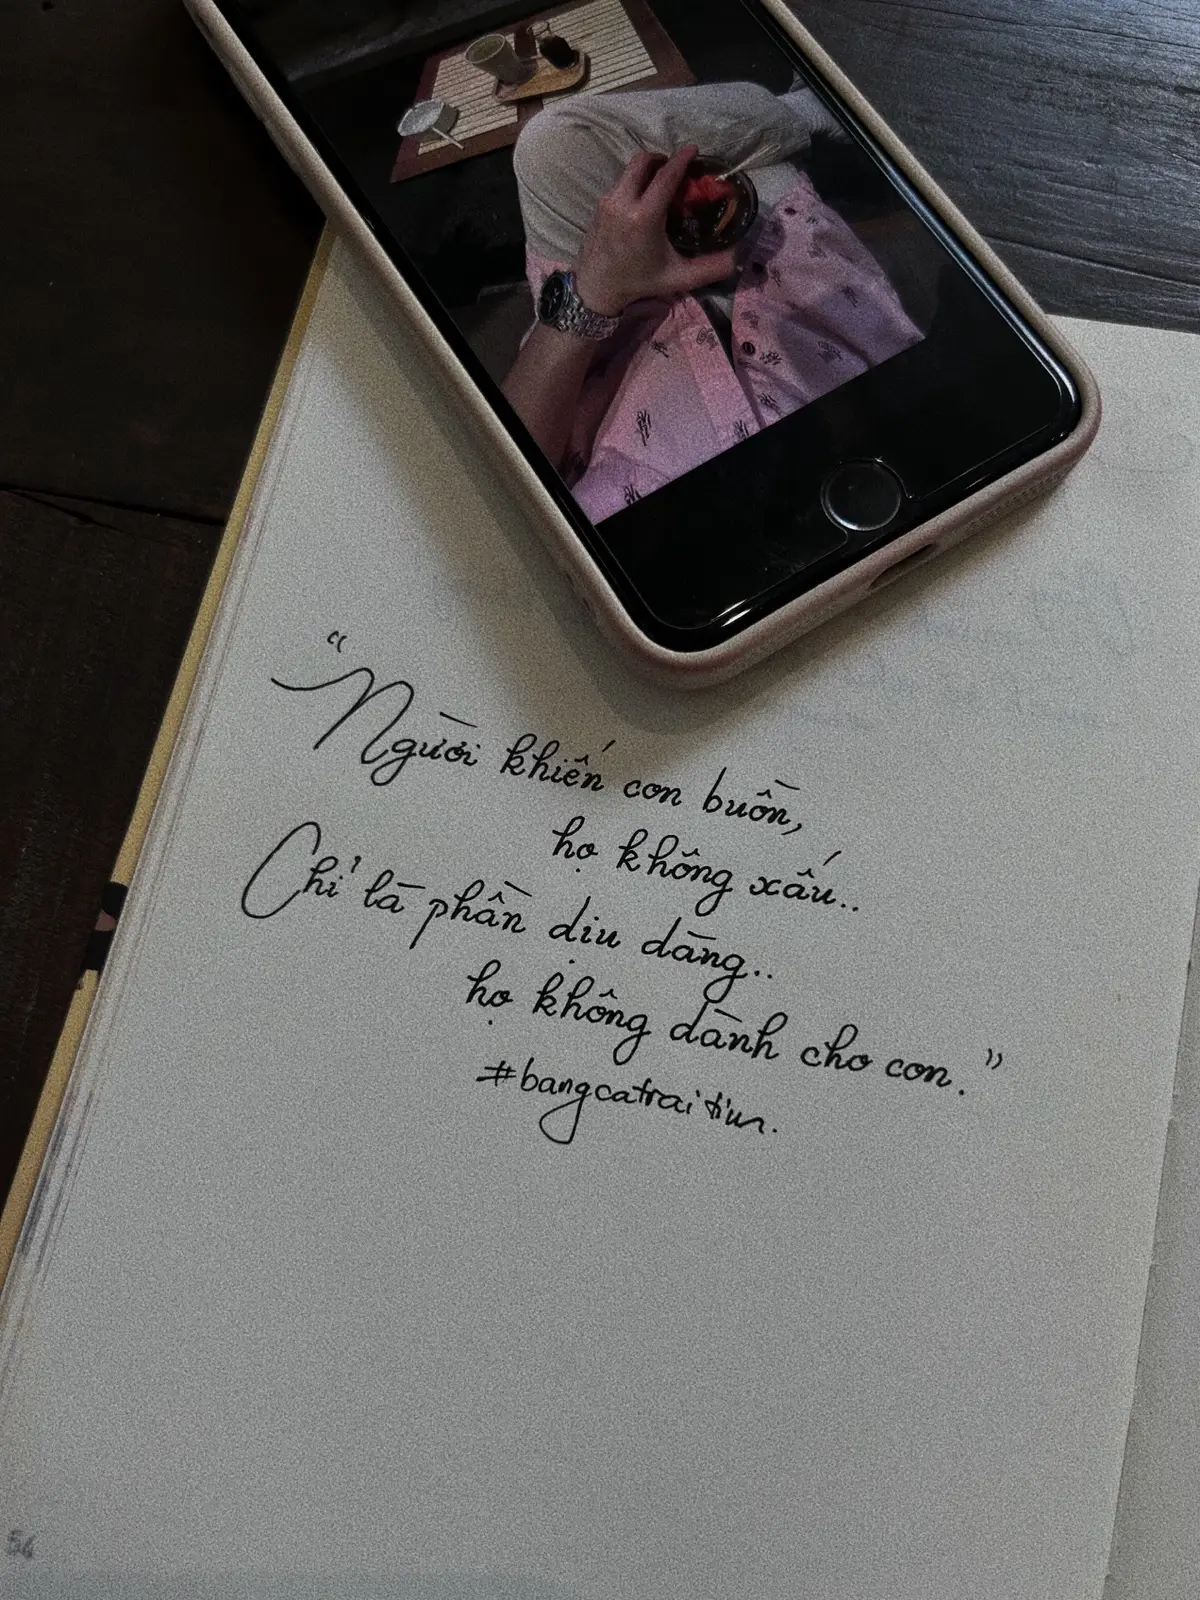 “Người khiến con buồn,
họ không xấu..
Chỉ là phần dịu dàng..
họ không dành cho con.”
#bangcatraitim.
54